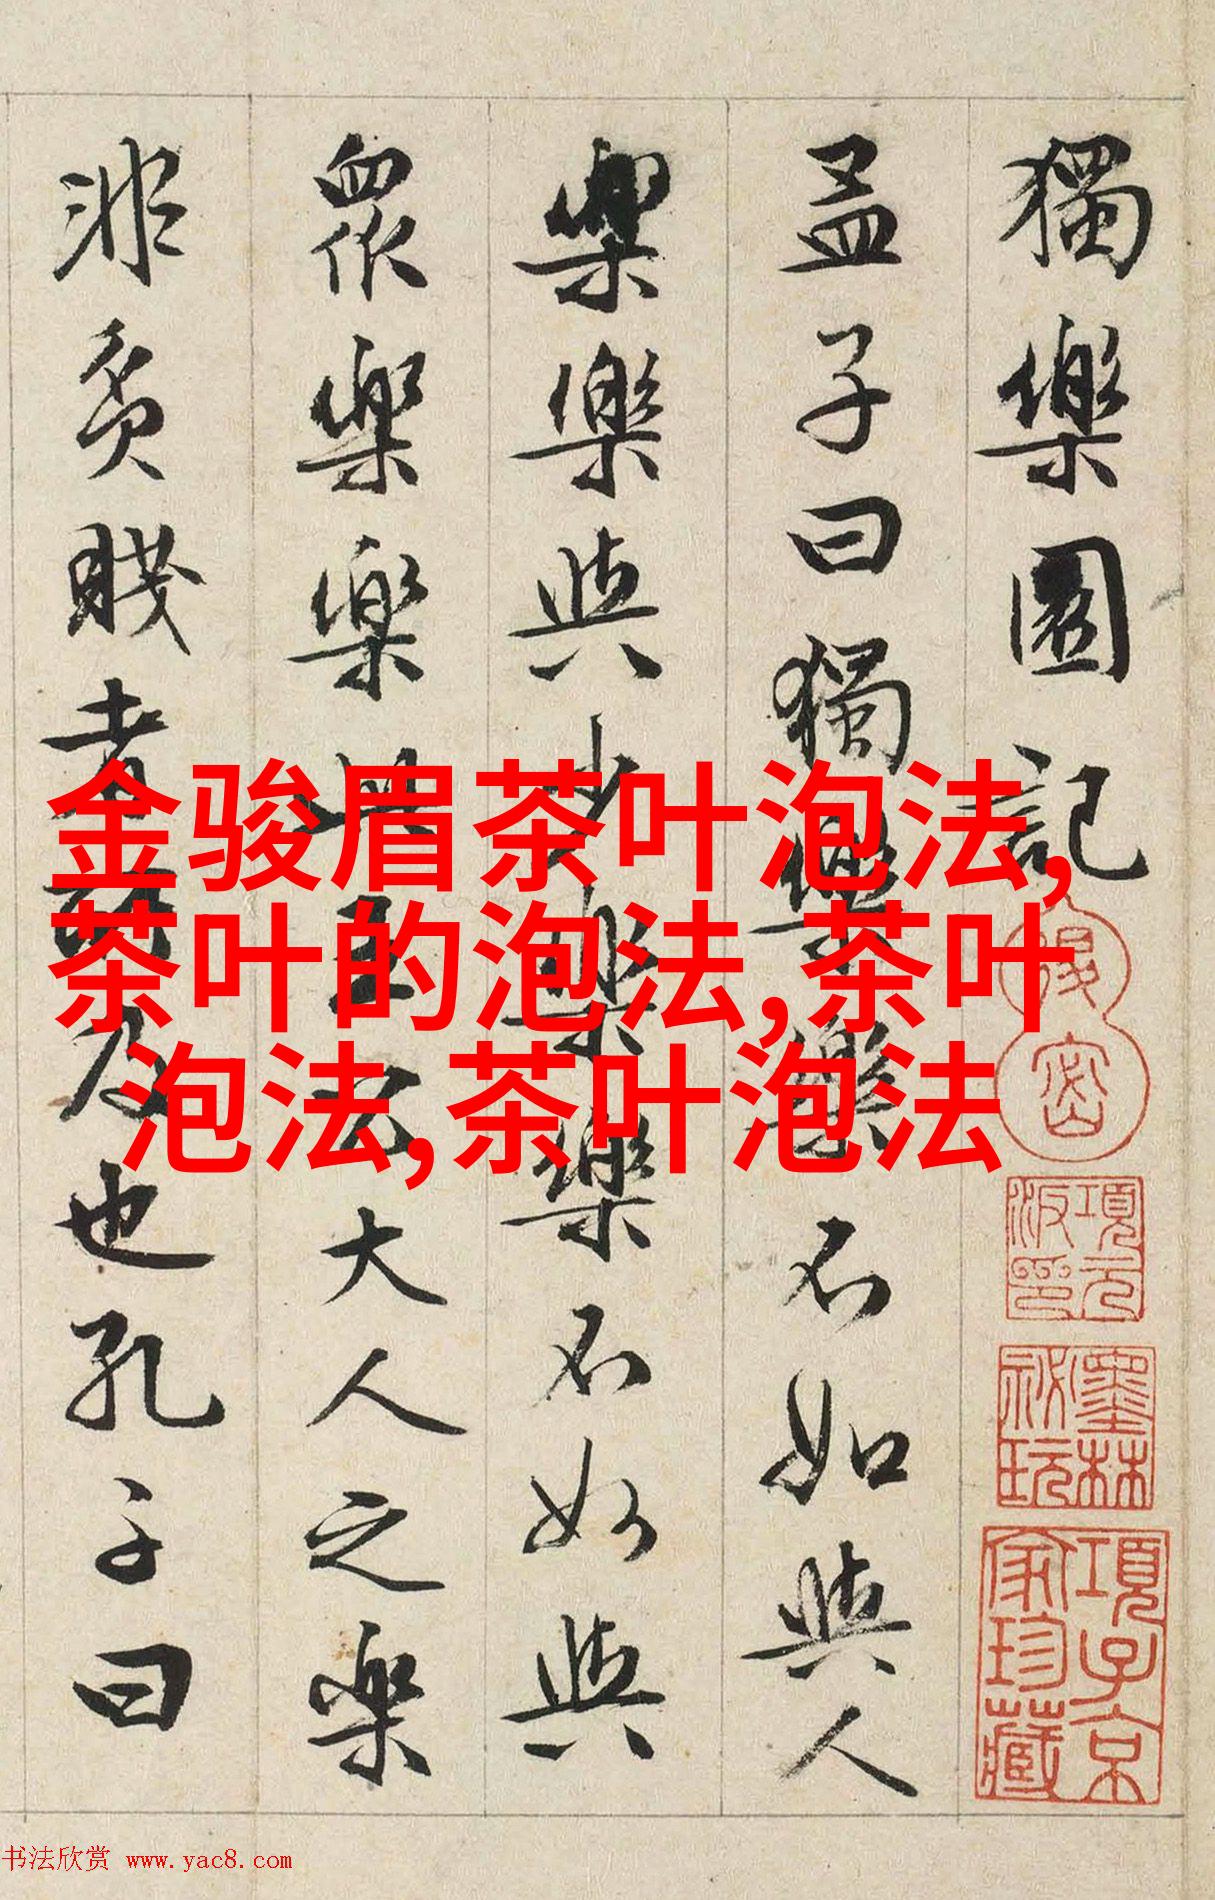 獨樂園記
孟子曰獨樂樂不如與人
樂樂與少樂樂不如與
衆樂樂此王公大人之樂
非貧賤者所及也孔子曰
金骏眉茶叶泡法,
茶叶的泡法,茶叶
泡法,茶叶泡法
項元汴印
墨林秘玩
項子京家珍藏
书法欣赏 www.yac8.com